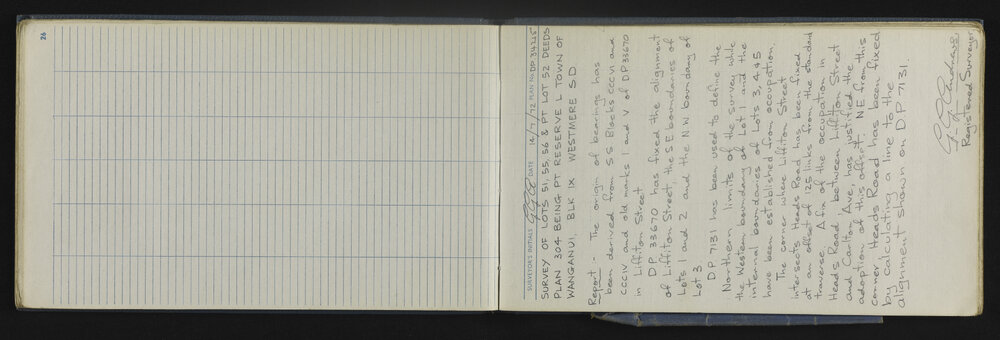 26
SURVEYOR'S INITIALS GGA DATE 14/7/72 PLAN No. DP 34245
SURVEY OF LOTS 51, 55, 56 & PT LOT 52 DEEDS
PLAN 304 BEING PT RESERVE L TOWN OF
WANGANUI, BLK IX WESTMERE SD
Report - The origin of bearings has
been derived from SS Blocks CCCVI and
CCCIV and old marks I and V of DP33670
in Liffiton Street
DP 33670 has fixed the alignment
of Liffiton Street, the SE boundaries of
Lots 1 and 2 and the NW boundary of
Lot 3
DP 7131 has been used to define the
Northern limits of the survey while
the Western boundary of Lot 1 and the
internal boundaries of Lots 3, 4 & 5
have been established from occupation.
The corner where Liffiton Street
intersects Heads Road has been fixed
at an offset of 125 links from the standard
traverse. A fix of the occupation in
Heads Road, between Liffiton Street
and Carlton Ave, has justified the
adoption of this offset. NE from this
corner Heads Road has been fixed
by calculating a line to the
alignment shown on DP 7131.
G G Andrews
Registered Surveyor